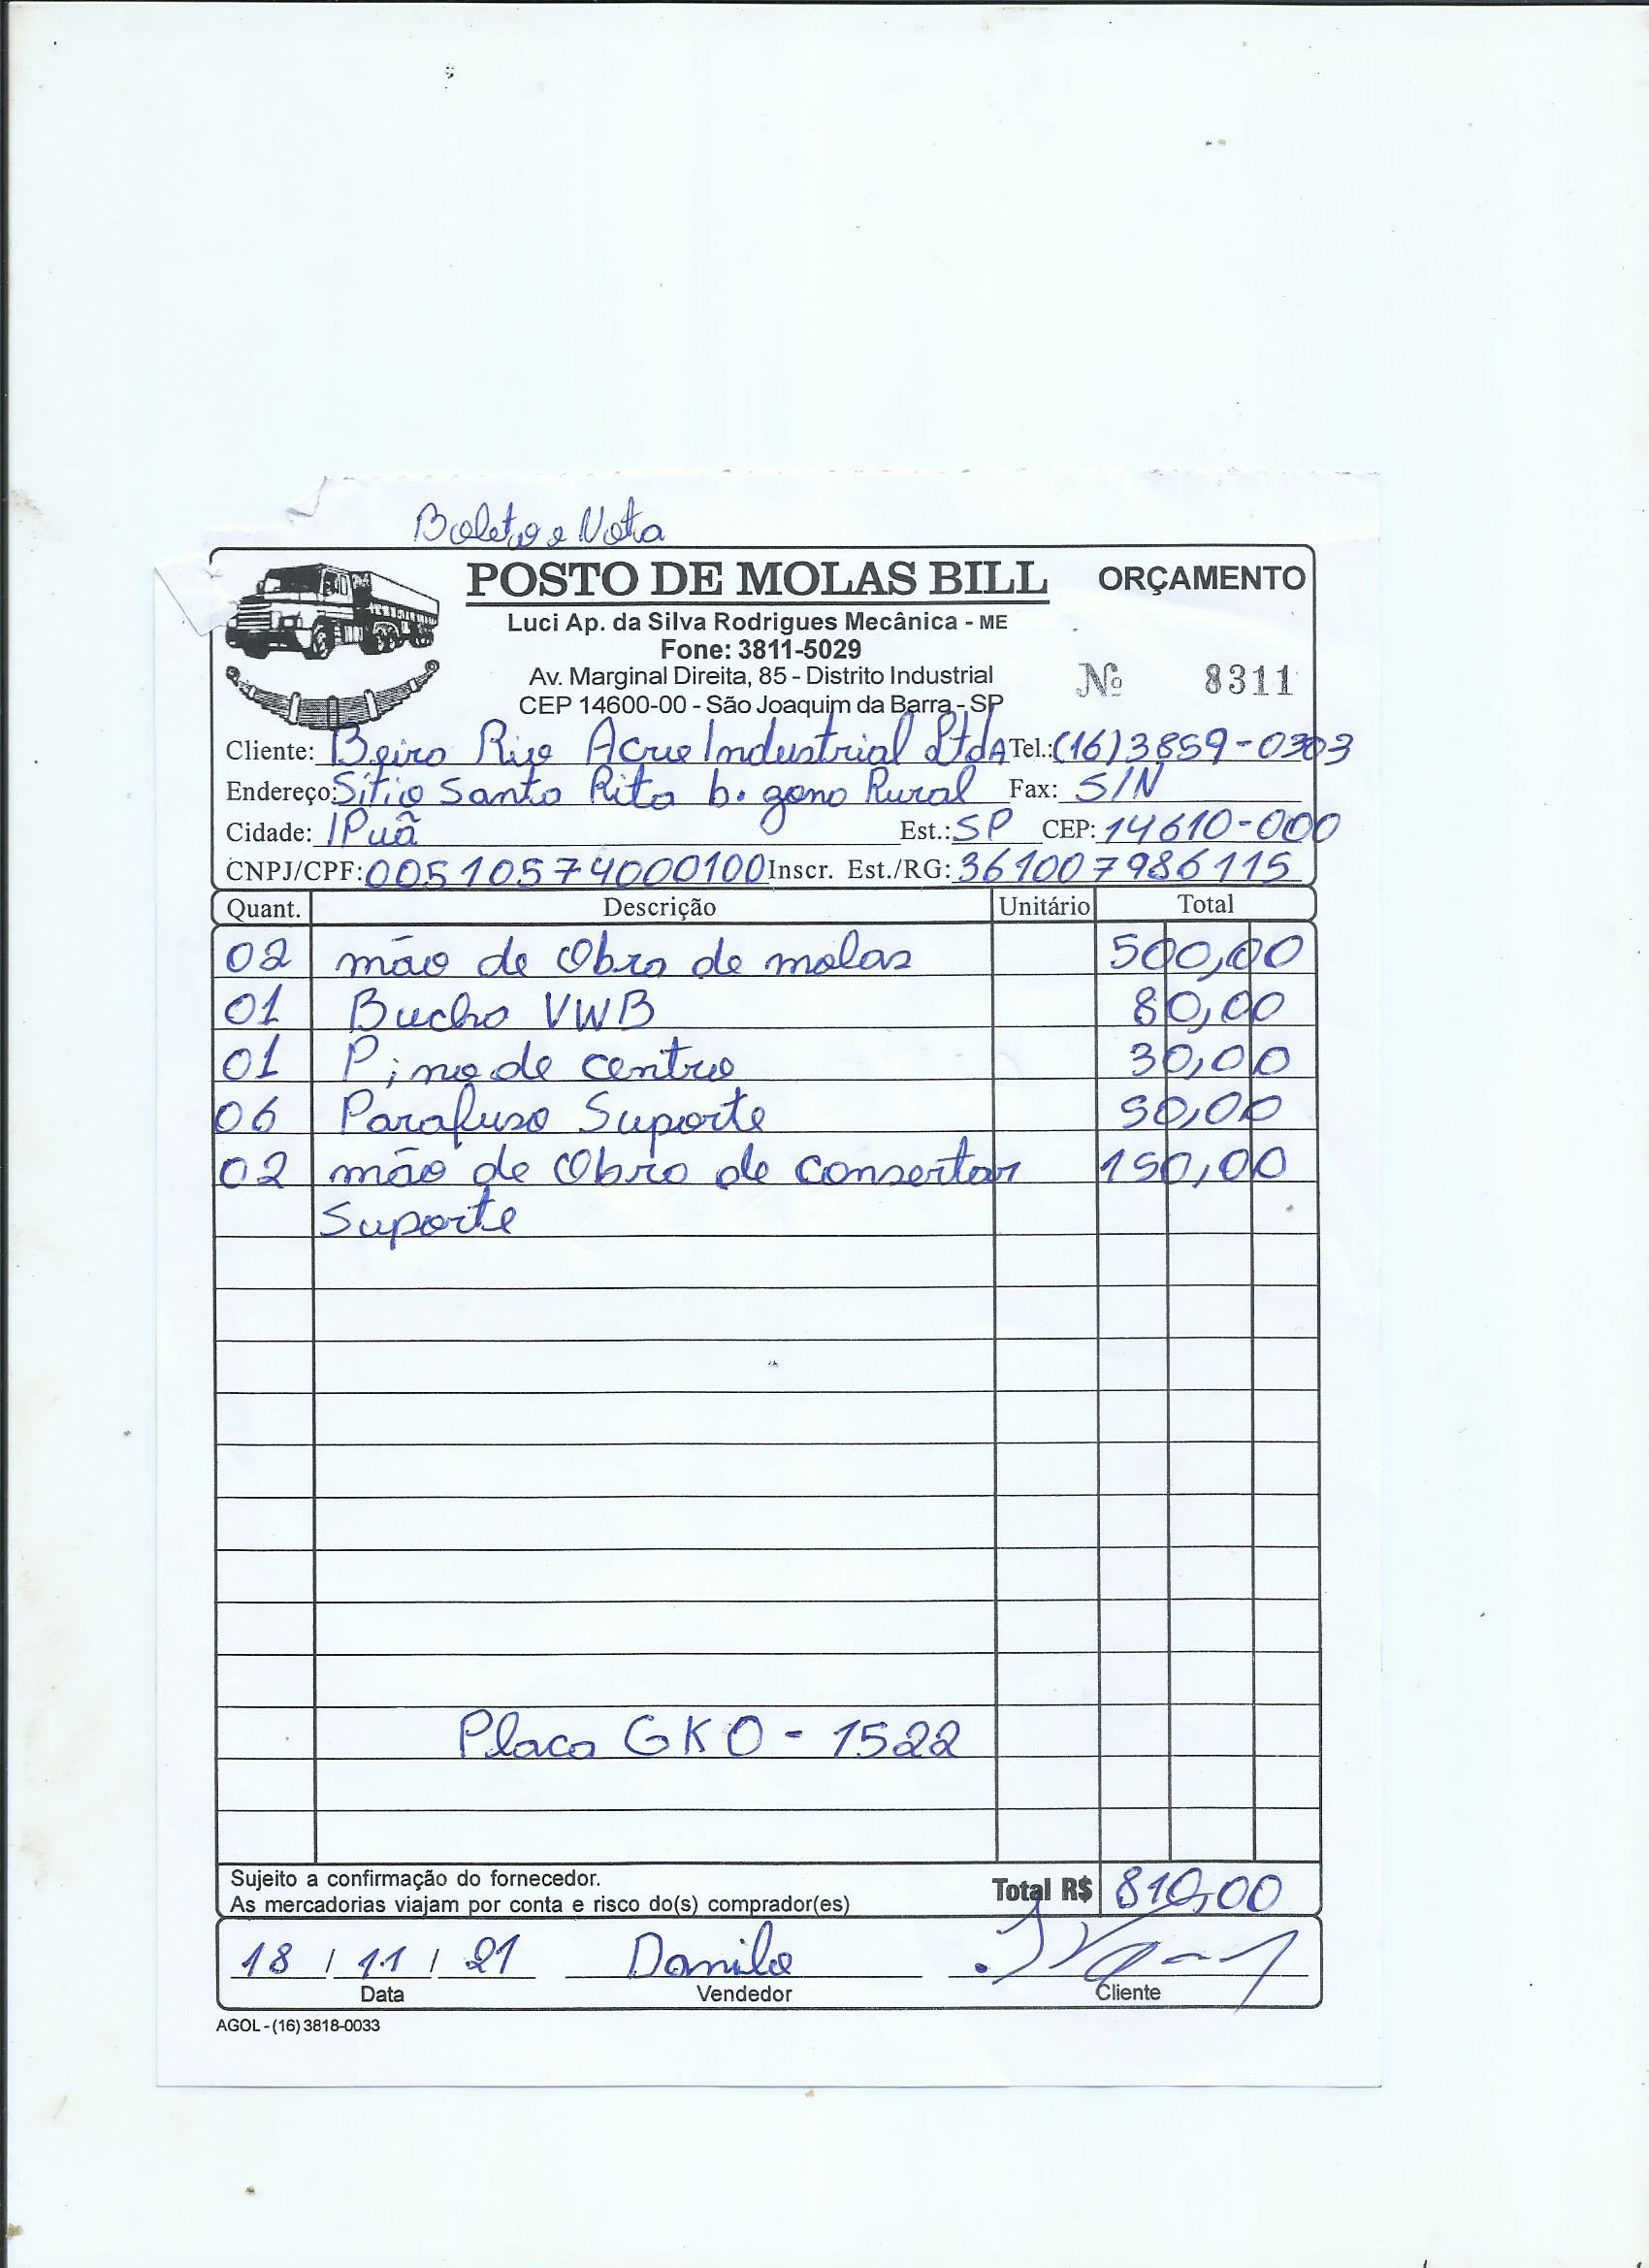 Boleto e Nota
POSTO DE MOLAS BILL ORÇAMENTO
Luci Ap. da Silva Rodrigues Mecânica - ME
Fone: 3811-5029
Av. Marginal Direita, 85 - Distrito Industrial Nº 8311
CEP 14600-00 - São Joaquim da Barra - SP
Cliente: Beira Rio Acrue Industrial LtdA Tel.: (16) 3859-0303
Endereço: Sítio Santa Rita b. zona Rural Fax: S/N
Cidade: IPuã Est.: SP CEP: 14610-000
CNPJ/CPF: 00510574000100 Inscr. Est./RG: 361007986115
Quant. Descrição Unitário Total
02 mão de Obra de molas 500,00
01 Bucha VWB 80,00
01 Pino de centro 30,00
06 Parafuso Suporte 50,00
02 mão de Obra de consertar 150,00
Suporte
Placa GKO - 1522
Sujeito a confirmação do fornecedor.
As mercadorias viajam por conta e risco do(s) comprador(es) Total R$ 810,00
18 / 11 / 21 Danilo
Data Vendedor Cliente
AGOL - (16) 3818-0033